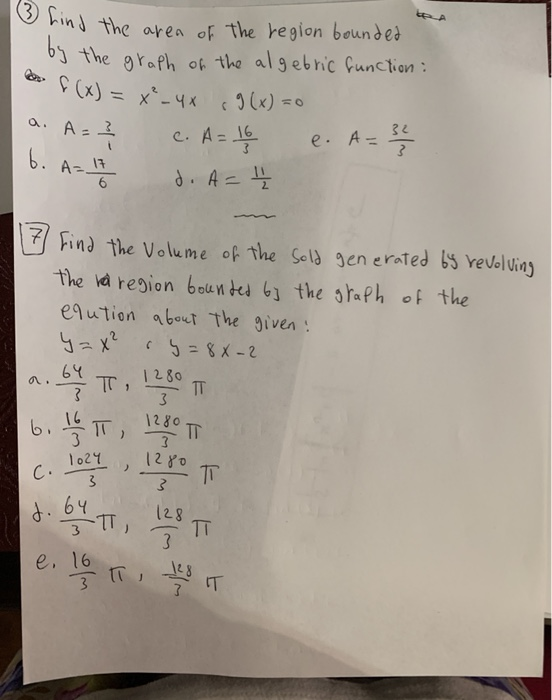 ③ find the area of the region bounded
by the graph of the algebric function:
f(x) = x² - 4x , g(x) = 0
a. A = 3/1 c. A = 16/3 e. A = 32/3
b. A = 17/6 d. A = 11/2
7 Find the Volume of the Sold generated by revolving
the region bounded by the graph of the
eqution about the given:
y = x² , y = 8x - 2
a. 64/3 π, 1280/3 π
b. 16/3 π, 1280/3 π
c. 1024/3, 1280/3 π
d. 64/3 π, 128/3 π
e. 16/3 π, 128/3 π